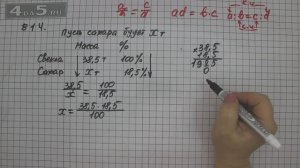 4 из 5 ru
a/b = c/d
ad = b·c
a:b = c:d
814. Пусть сахара будет х т
Масса %
Свекла 38,5 т 100%
Сахар х т 18,5%
38,5/х = 100/18,5
х = 38,5 · 18,5/100
×38,5
18,5
1925
0